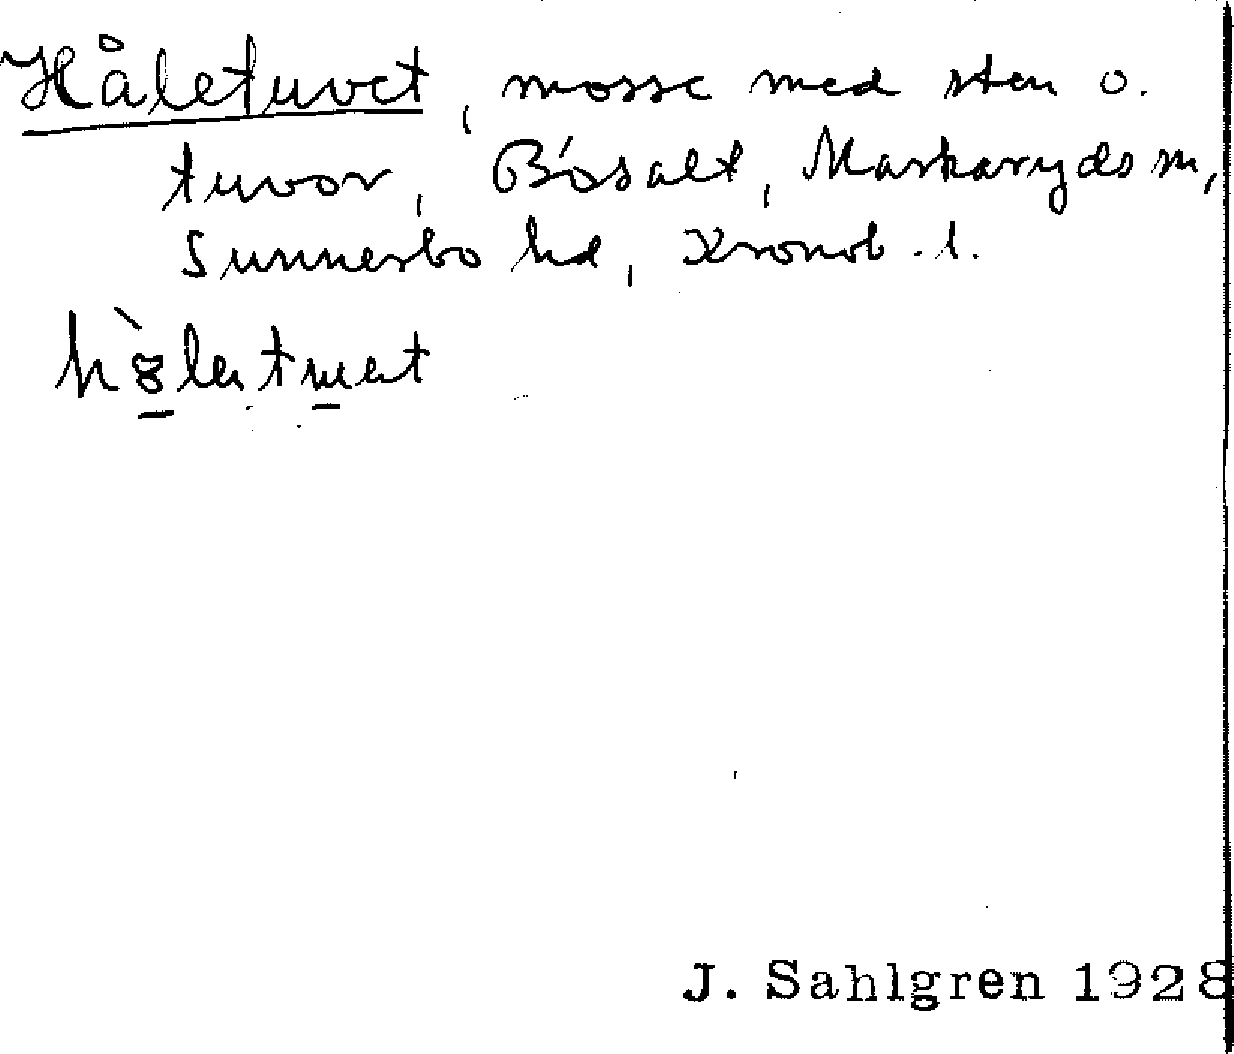 Håletuvet, mosse med sten o.
tuvor, Bósalt, Markaryds sn,
Sunnerbo hd, Kronob. l.
J. Sahlgren 1928